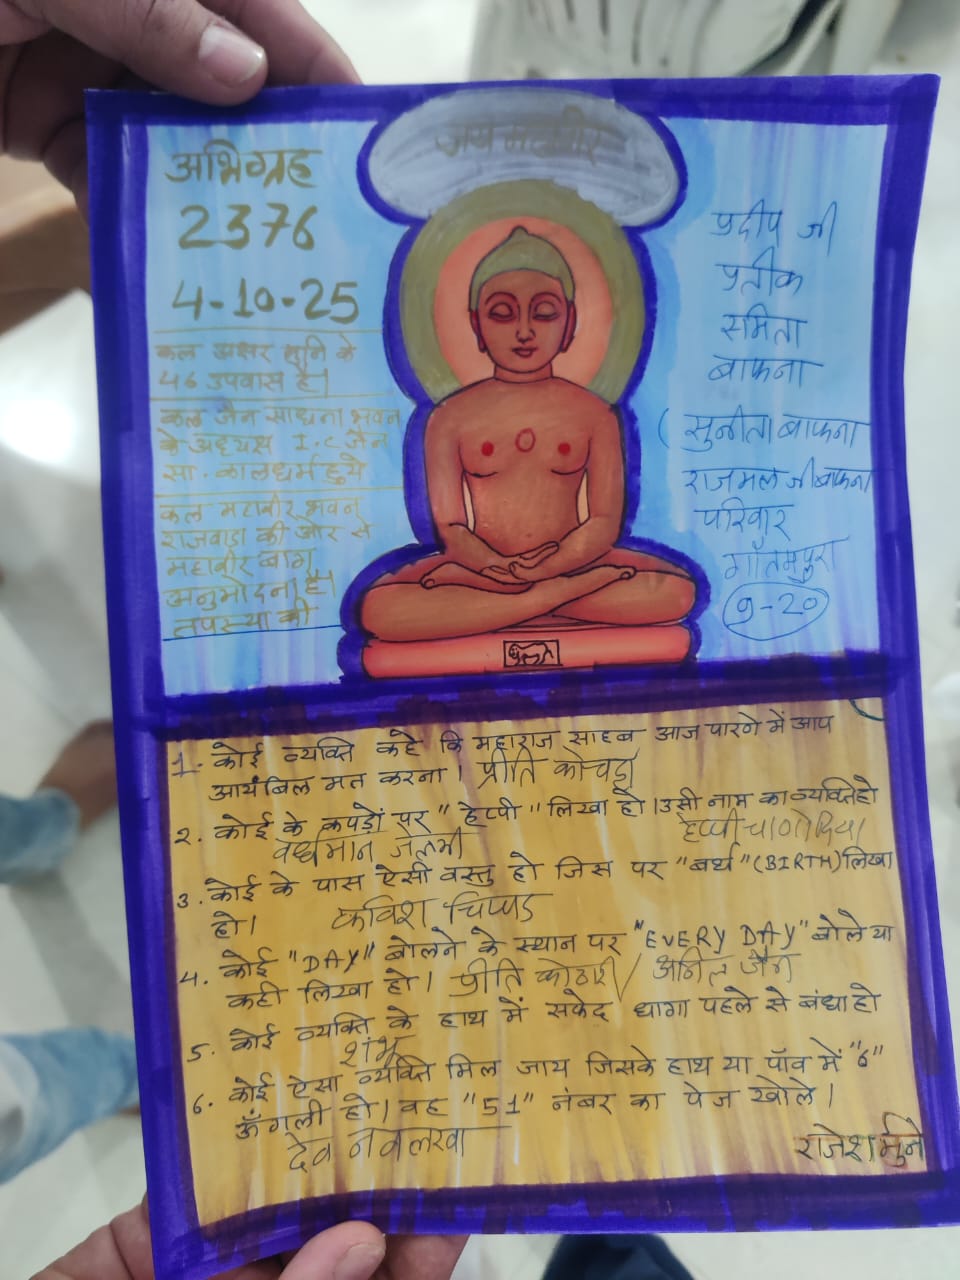 जय महावीर
अभिग्रह
2376
4-10-25
कल अक्षर मुनि के
46 उपवास है।
कल जैन साधना भवन
के अध्यक्ष I.C जैन
सा. कालधर्म हुये
कल महावीर भवन
राजवाडा की ओर से
महावीर बाग
अनुमोदना है।
तपस्या की
प्रदीप जी
प्रतीक
समिता
बाफना
(सुनीता बाफना
राजमल जी बाफना
परिवार
गौतमपुरा
9-20
1. कोई व्यक्ति कहे कि महाराज साहब आज पारणे में आप
आयंबिल मत करना। प्रीति कोचड़ा
2. कोई के कपड़ों पर "हेप्पी" लिखा हो। उसी नाम का व्यक्ति हो
वर्धमान जलमी हेप्पी चाणोदिया
3. कोई के पास ऐसी वस्तु हो जिस पर "बर्थ" (BIRTH) लिखा
हो। कविश चिप्पड
4. कोई "DAY" बोलने के स्थान पर "EVERY DAY" बोले या
कही लिखा हो। प्रीति कोठारी / अनिल जैन
5. कोई व्यक्ति के हाथ में सफेद धागा पहले से बंधा हो
शंभू
6. कोई ऐसा व्यक्ति मिल जाय जिसके हाथ या पाँव में "6"
ऊँगली हो। वह "51" नंबर का पेज खोले।
देव नवलखा
राजेश मुनि